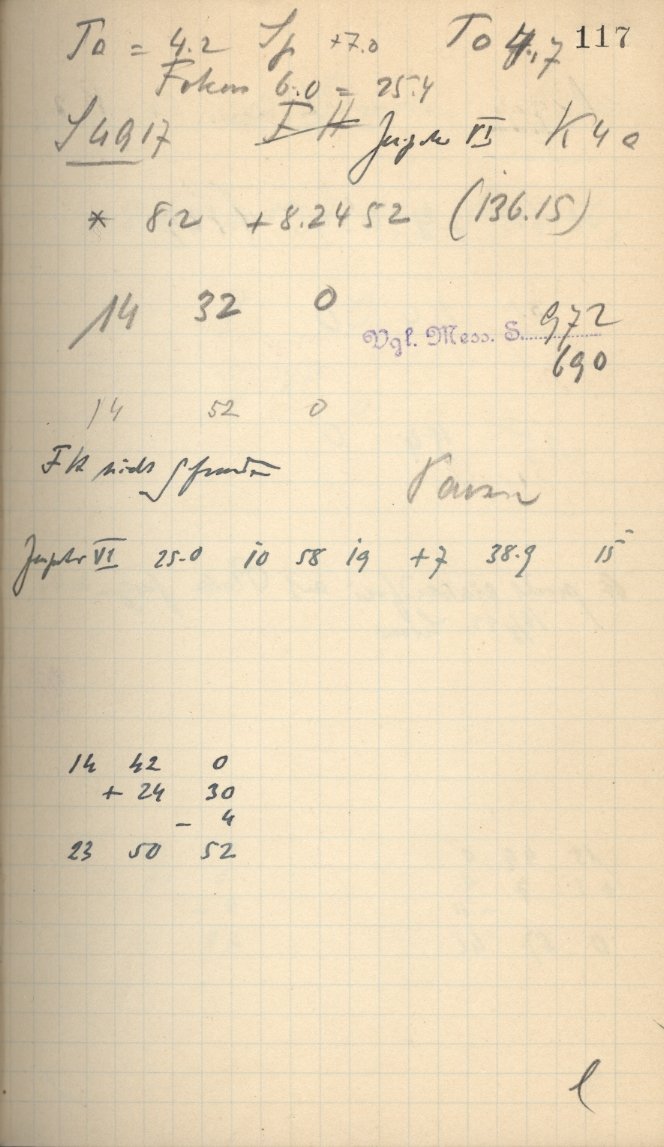 To = 4.2 Sp +7.0 To 4.7 117
Fokus 6.0 = 25.4
S4917 FK Jupiter VI K4a
* 8.2 +8.2452 (136.15)
14 32 0
Vgl. Mess. S. 972
690
14 52 0
FK nicht gefunden
Jupiter VI 25.0 10 58 19 +7 38.9 15
14 42 0
+ 24 30
- 4
23 50 52